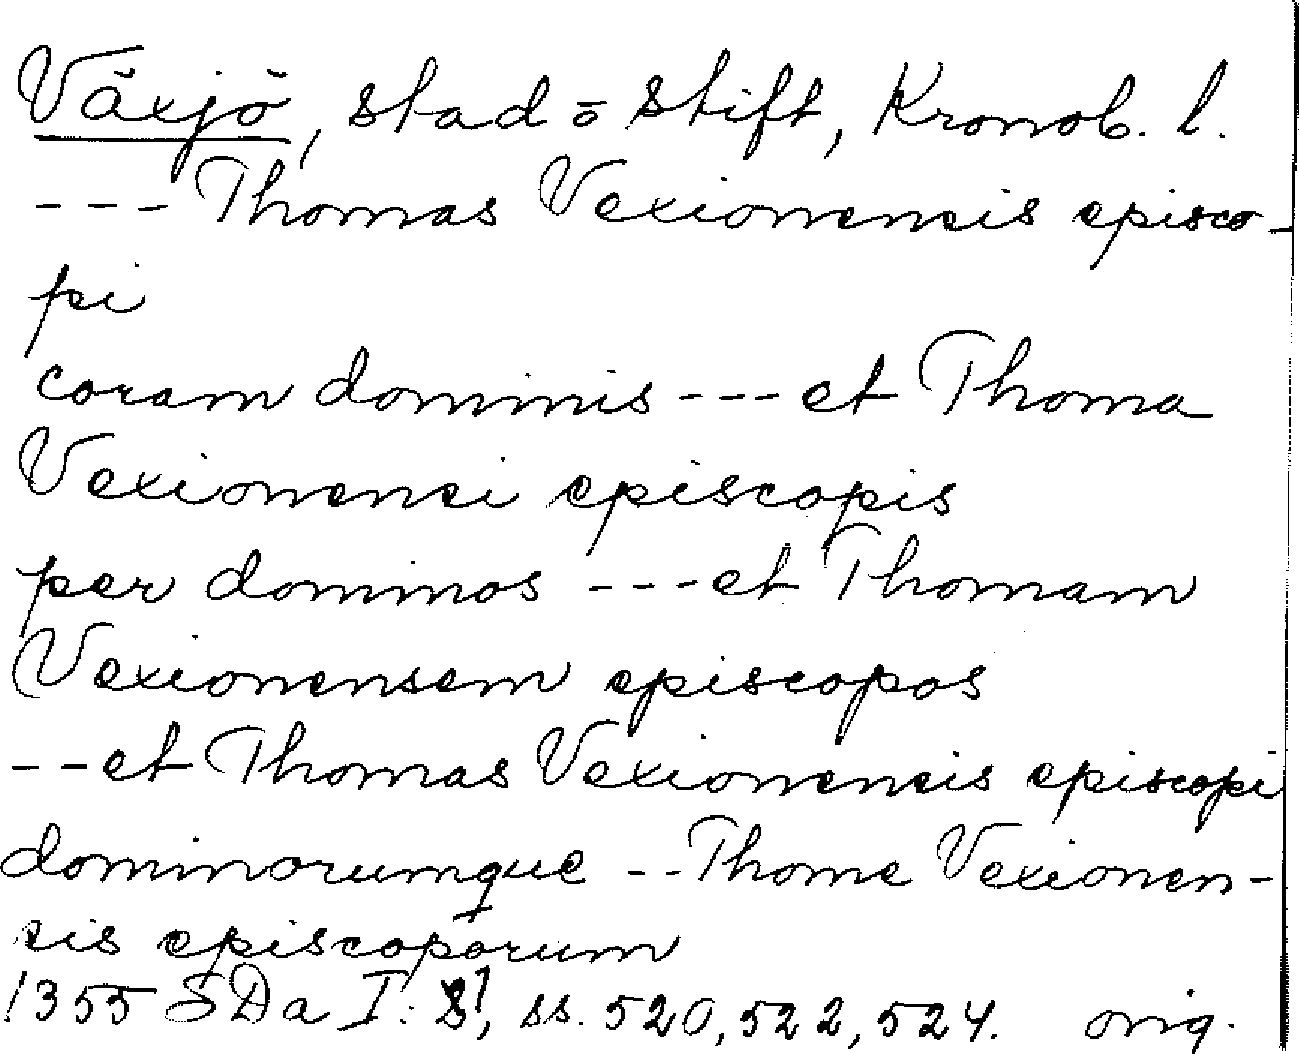 Växjö, stad o stift, Kronob. l.
--- Thomas Vexionensis episco-
pi
coram dominis --- et Thoma
Vexionensi episcopis
per dominos --- et Thomam
Vexionensem episcopos
-- et Thomas Vexionensis episcopi
dominorumque -- Thome Vexionen-
sis episcoporum
1355 SDa I: ss. 520, 522, 524. orig.